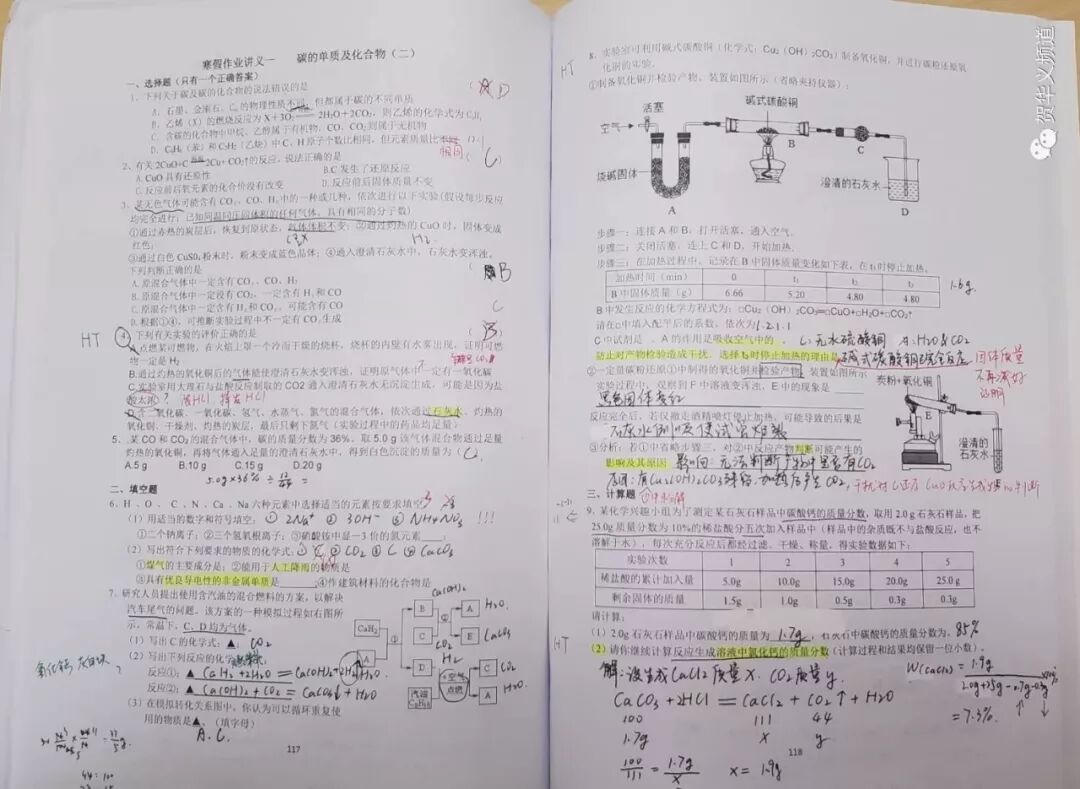 寒假作业讲义一 碳的单质及化合物（二）
一、选择题（只有一个正确答案）
1、下列关于碳及碳的化合物的说法错误的是 （ D
A．石墨、金刚石、C₆₀的物理性质不同，但都属于碳的不同单质
B．乙烯（X）的燃烧反应为 X＋3O₂ 2H₂O＋2CO₂，则乙烯的化学式为C₂H₄
C．含碳的化合物中甲烷、乙醇属于有机物，CO、CO₂则属于无机物
D．C₆H₆（苯）和 C₂H₂（乙炔）中 C、H 原子个数比相同，但元素质量比
相同
2、有关 2CuO+C 2Cu+ CO₂↑的反应，说法正确的是 C
A. CuO 具有还原性 B.C 发生了还原反应
C. 反应前后氧元素的化合价没有改变 D. 反应前后固体质量不变
3、某无色气体可能含有 CO、CO₂、H₂中的一种或几种，依次进行以下实验(假设每步反应
均完全进行；已知同温同压同体积的任何气体，具有相同的分子数)
①通过赤热的炭层后，恢复到原状态，气体体积不变；②通过灼热的 CuO 时，固体变成
红色；
H₂
③通过白色 CuSO₄粉末时，粉末变成蓝色晶体；④通入澄清石灰水中，石灰水变浑浊。
下列判断正确的是 （ B
A.原混合气体中一定含有 CO、CO₂、H₂
B.原混合气体中一定没有 CO₂，一定含有 H₂和 CO
C.原混合气体中一定含有 H₂和 CO₂，可能含有 CO C
D.根据①④，可推断实验过程中不一定有 CO₂生成
HT 4．下列有关实验的评价正确的是 （ B
A.点燃某可燃物，在火焰上罩一个冷而干燥的烧杯，烧杯的内壁有水雾出现，证明可燃
物一定是 H₂
B.通过灼热的氧化铜后的气体能使澄清石灰水变浑浊，证明原气体中一定有一氧化碳
C.实验室用大理石与盐酸反应制取的 CO2 通入澄清石灰水无沉淀生成，可能是因为盐
酸太浓 挥发HCl
D.含二氧化碳、一氧化碳、氢气、水蒸气、氮气的混合气体，依次通过石灰水、灼热的
氧化铜、干燥剂、灼热的炭层，最后只剩下氮气（实验过程中的药品均足量）
5．某 CO 和 CO₂的混合气体中，碳的质量分数为 36%，取 5.0 g 该气体混合物通过足量
灼热的氧化铜，再将气体通入足量的澄清石灰水中，得到白色沉淀的质量为（ C
A.5 g B.10 g C.15 g D.20 g
5.0g×36% ÷
二、填空题
6、H 、O 、 C 、N 、Ca 、Na 六种元素中选择适当的元素按要求填空
（1）用适当的数字和符号填空： ① 2Na⁺ ② 3OH⁻ ③ NH₄NO₃ !!!
①二个钠离子；②三个氢氧根离子；③硝酸铵中显－3 价的氮元素
（2）写出符合下列要求的物质的化学式： ② CO₂ ③ C ④ CaCO₃
①煤气的主要成分是；②能用于人工降雨的物质是
③具有优良导电性的非金属单质是 ；④作建筑材料的化合物是
7、研究人员提出使用含汽油的混合燃料的方案，以解决
汽车尾气的问题。该方案的一种模拟过程如右图所
示，常温下，C、D 均为气体。
（1）写出 C 的化学式：▲； CO₂
（2）写出下列反应的化学
反应①：▲ CaH₂ +2H₂O == Ca(OH)₂+2H₂↑
反应②：▲ Ca(OH)₂ + CO₂ == CaCO₃↓ + H₂O
（3）在模拟转化关系图中，你认为可以循环重复使
用的物质是▲。(填字母)
A. C.
Ca(OH)₂
B A H₂O
CaH₂ ① C ② E CaCO₃
A D H₂
＋空气 点燃 C
汽油 C₈H₁₈ A H₂O
117
44 : 100
HT 8．实验室可利用碱式碳酸铜（化学式：Cu₂（OH）₂CO₃）制备氧化铜，并进行碳粉还原氧
化铜的实验。
①制备氧化铜并检验产物，装置如图所示（省略夹持仪器）：
活塞 碱式碳酸铜
空气
B C
烧碱固体 澄清的石灰水
A D
步骤一：连接 A 和 B，打开活塞，通入空气。
步骤二：关闭活塞，连上 C 和 D，开始加热。
步骤三：在加热过程中，记录在 B 中固体质量变化如下表，在 t₃时停止加热。
加热时间（min） 0 t₁ t₂ t₃
B 中固体质量（g） 6.66 5.20 4.80 4.80
1.6g
B 中发生反应的化学方程式为：□Cu₂（OH）₂CO₃═□CuO+□H₂O+□CO₂↑
请在□中填入配平后的系数，依次为 1.2.1.1
C 中试剂是 、A 的作用是吸收空气中的 C:无水硫酸铜 A:H₂O&CO₂
防止对产物检验造成干扰，选择 t₃时停止加热的理由是 碱式碳酸铜已完全反应 固体质量
不再减少
②一定量碳粉还原①中制得的氧化铜并检验产物，装置如图所示
实验过程中，观察到 F 中溶液变浑浊，E 中的现象是
黑色固体变红
炭粉+氧化铜
E
澄清的石灰水
F
反应完全后，若仅撤走酒精喷灯停止加热，可能导致的后果是
石灰水倒吸使试管炸裂
③分析：若①中省略步骤三，对②中反应产物判断可能产生的
影响及其原因 影响：无法判断产物中是否有CO₂
原因：有Cu₂(OH)₂CO₃ 加热后产生CO₂,干扰对C还原CuO 判断
三、计算题
9、某化学兴趣小组为了测定某石灰石样品中碳酸钙的质量分数，取用 2.0 g 石灰石样品，把
25.0g 质量分数为 10%的稀盐酸分五次加入样品中（样品中的杂质既不与盐酸反应，也不
溶解于水），每次充分反应后都经过滤、干燥、称量，得实验数据如下：
实验次数 1 2 3 4 5
稀盐酸的累计加入量 5.0g 10.0g 15.0g 20.0g 25.0 g
剩余固体的质量 1.5g 1.0g 0.5g 0.3g 0.3g
请计算：
（1）2.0g 石灰石样品中碳酸钙的质量为 1.7g，石灰石中碳酸钙的质量分数为。 85%
HT （2）请你继续计算反应生成溶液中氯化钙的质量分数（计算过程和结果均保留一位小数）。
解：设生成CaCl₂质量x，CO₂质量y.
CaCO₃ +2HCl = CaCl₂ + CO₂↑ + H₂O
100 111 44
1.7g x y
100/111 = 1.7g/x x= 1.9g
W(CaCl₂) = 1.9g
= 7.3%
118
贺华义频道